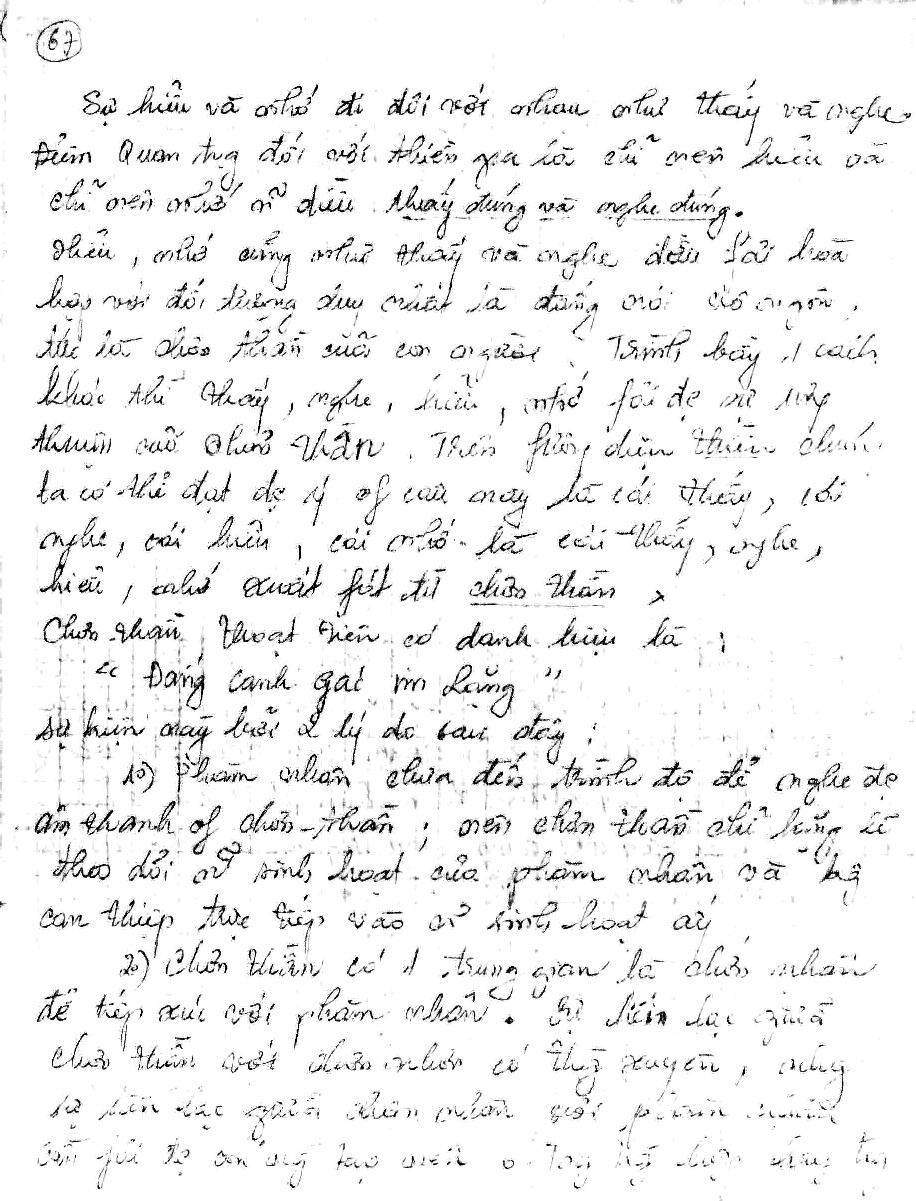 67
Sự hiểu và nhớ đi đôi với nhau như thấy và nghe.
Điểm Quan tṛg đối với thiền gia là chỉ nên hiểu và
chỉ nên nhớ n̄ điều thấy đúng và nghe đúng.
Hiểu, nhớ cũng như thấy và nghe đều fải hòa
hợp với đối tượng duy nhất là đấng nói vô ngôn,
tức là chơn thần của con người. Trình bày 1 cách
khác thì thấy, nghe, hiểu, nhớ fải đc sự ưng
thuận của Chơn Thần. Trên fương diện thiền chúng
ta có thể đạt đc ý of câu này là cái thấy, cái
nghe, cái hiểu, cái nhớ là cái thấy, nghe,
hiểu, nhớ xuất fát từ chơn thần.
Chơn thần thoạt tiên có danh hiệu là:
"Đấng canh gác im lặng"
sự kiện này bởi 2 lý do sau đây:
1o) Phàm nhân chưa đến trình độ để nghe đc
âm thanh of chơn-thần; nên chơn thần chỉ lặng lẽ
theo dõi n̄ sinh hoạt của phàm nhân và kg
can thiệp trực tiếp vào n̄ sinh hoạt ấy
2o) Chơn thần có 1 trung gian là chơn nhân
để tiếp xúc với phàm nhân. Sự liên lạc giữa
chơn thần với chơn nhơn có thg xuyên, nhg
sự liên lạc giữa chơn nhân với phàm nhân
cần fải đc tạo nên.